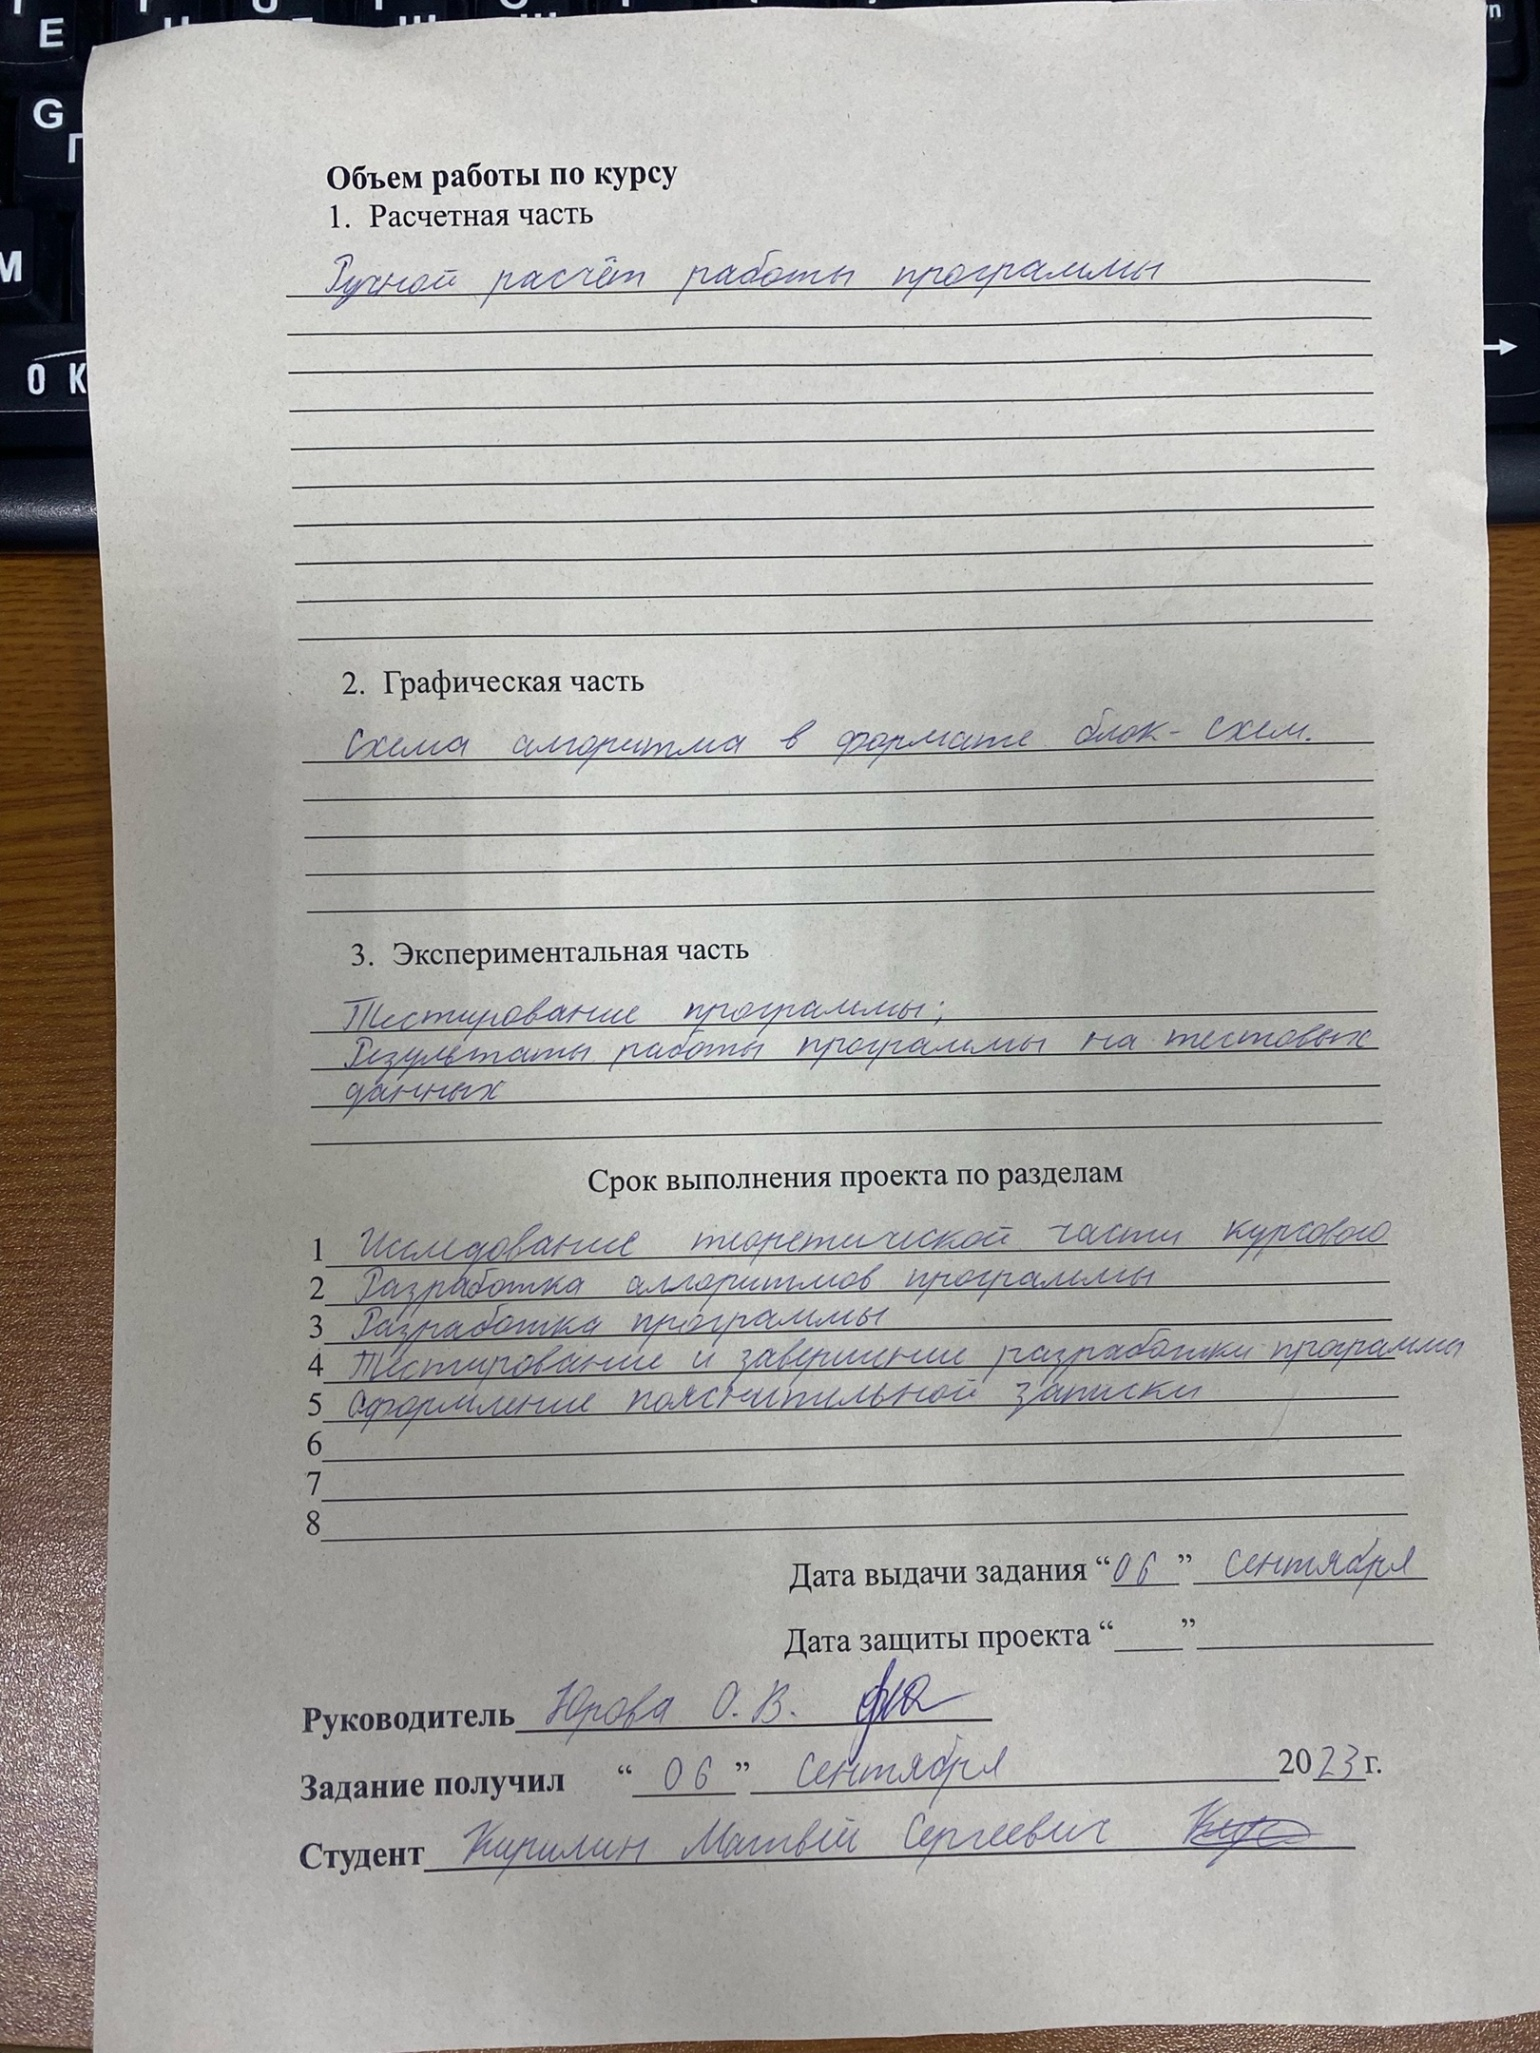 Объем работы по курсу
1. Расчетная часть
Ручной расчёт работы программы
2. Графическая часть
Схема алгоритма в формате блок-схем.
3. Экспериментальная часть
Тестирование программы;
Результаты работы программы на тестовых
данных
Срок выполнения проекта по разделам
1 Исследование теоретической части курсового
2 Разработка алгоритмов программы
3 Разработка программы
4 Тестирование и завершение разработки программы
5 Оформление пояснительной записки
6
7
8
Дата выдачи задания “06” сентября
Дата защиты проекта “ ”
Руководитель Юрова О.В.
Задание получил “06” сентября 2023г.
Студент Кирилин Матвей Сергеевич